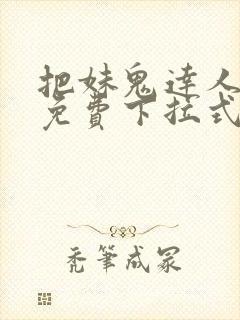 把妹鬼達人
免費下拉式
禿筆成冢